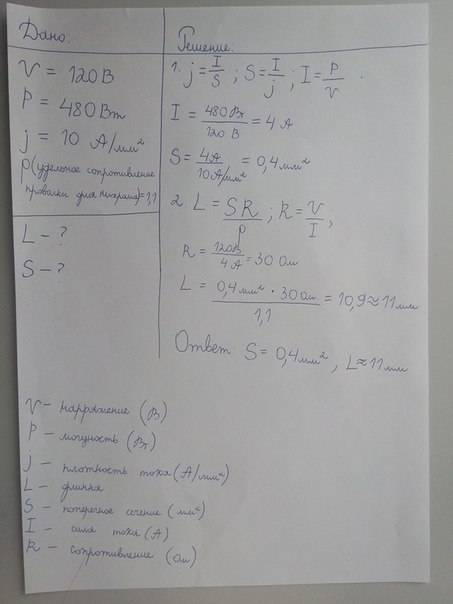 Дано:
V = 120 В
P = 480 Вт
j = 10 А/мм²
ρ (удельное сопротивление
проволки для нихрома) = 1,1
L - ?
S - ?
Решение:
1. j = I/S ; S = I/j ; I = P/V
I = 480 Вт / 120 В = 4 А
S = 4А / 10 А/мм² = 0,4 мм²
2 L = SR/ρ ; R = V/I ,
R = 120В / 4 А = 30 Ом
L = 0,4 мм² · 30 Ом / 1,1 = 10,9 ≈ 11 мм
Ответ S = 0,4 мм² , L ≈ 11 мм
V – напряжение (В)
P – мощность (Вт)
j – плотность тока (А/мм²)
L – длинна
S – поперечное сечение (мм²)
I – сила тока (А)
R – сопротивление (Ом)